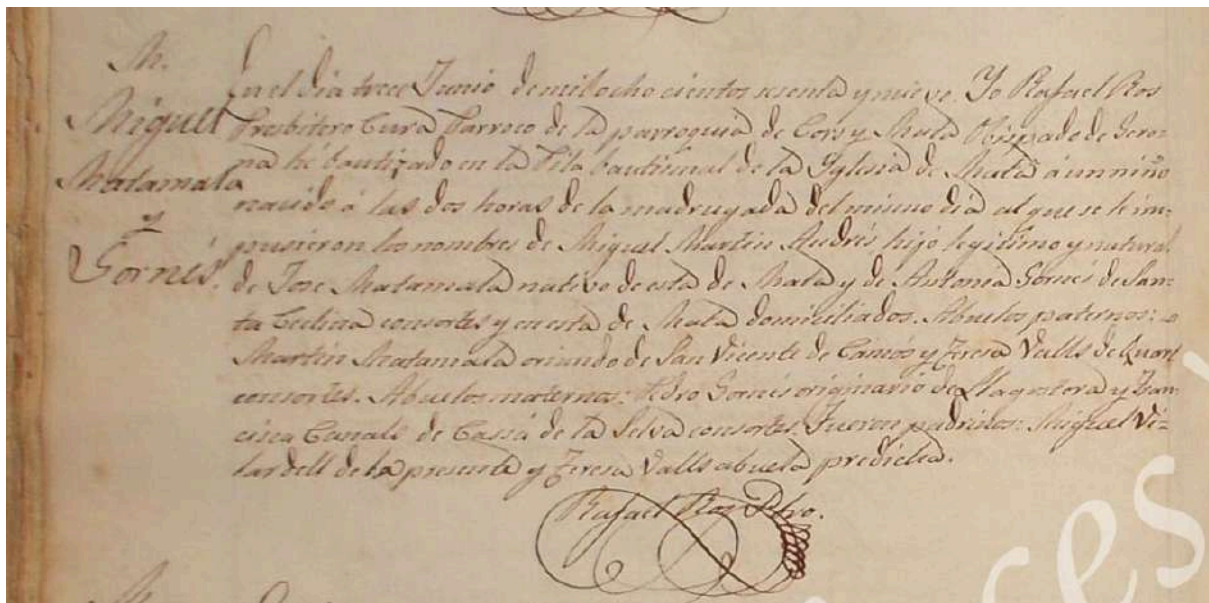 M.
Miguel
Matamala
y
Gornés.
En el dia trece Junio de mil ocho cientos sesenta y nueve. Yo Rafael Ros
Presbitero Cura Parroco de la parroquia de Cors y Mata Obispado de Gero-
na hé bautizado en la Pila bautismal de la Iglesia de Mata á un niño
nacido á las dos horas de la madrugada del mismo dia al que se le im-
pusieron los nombres de Miguel Martin Andrés hijo legitimo y natural
de Jose Matamala nativo de esta de Mata y de Antonia Gornés de San-
ta consortes y en esta de Mata domiciliados. Abuelos paternos:
Martin Matamala oriundo de San Vicente de Camós y Teresa Valls de Quart
consortes. Abuelos maternos: Pedro Gornés originario de Llagostera y Fran-
cisca Canals de Cassá de la Selva consortes. Fueron padrinos: Miguel Vi-
lardell de la presente y Teresa Valls abuela predicha.
Rafael Ros Pbro.
ces